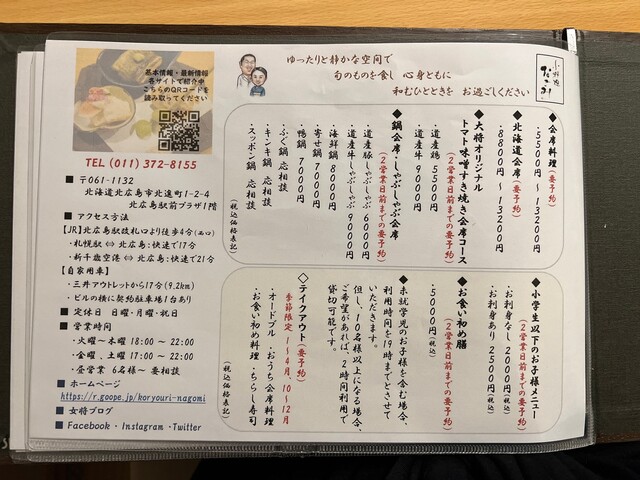 ゆったりと静かな空間で
旬のものを食し 心身ともに
和むひとときを お過ごしください
小料理
なごみ
基本情報・最新情報
各サイトで紹介中
こちらのQRコードを
読み取ってください
TEL (011) 372-8155
■ 〒061-1132
北海道北広島市北進町1-2-4
北広島駅前プラザ1階
■ アクセス方法
【JR】北広島駅改札口より徒歩4分(西口)
・札幌駅 ⇔ 北広島:快速で17分
・新千歳空港 ⇔ 北広島:快速で21分
【自家用車】
・三井アウトレットから17分(9.2km)
・ビルの横に契約駐車場1台あり
■ 定休日 日曜・月曜・祝日
■ 営業時間
・火曜〜木曜 18:00 〜 22:00
・金曜、土曜 17:00 〜 22:00
・昼営業 6名様〜 要相談
■ ホームページ
https://r.goope.jp/koryouri-nagomi
■ 女将ブログ
■ Facebook・Instagram・Twitter
◆会席料理
・5500円 〜 13200円
◆北海道会席(要予約)
・8800円 〜 13200円
◆大将オリジナル
トマト味噌すき焼き会席コース
(2営業日前までの要予約)
・道産鶏 5500円
・道産牛 9000円
◆鍋会席・しゃぶしゃぶ会席
(2営業日前までの要予約)
・道産豚しゃぶしゃぶ 6000円
・道産牛しゃぶしゃぶ 9000円
・海鮮鍋 8000円
・寄せ鍋 7000円
・鴨鍋 7000円
・ふぐ鍋 応相談
・キンキ鍋 応相談
・スッポン鍋 応相談
(税込価格表記)
◆小学生以下のお子様メニュー
(2営業日前までの要予約)
・お刺身なし 2000円(税込)
・お刺身あり 2500円(税込)
◆お食い初め膳
(2営業日前までの要予約)
・5000円(税込)
◆未就学児のお子様を含む場合、
利用時間を19時までとさせて
いただきます。
但し、10名様以上になる場合、
ご希望があれば、2時間利用で
貸切可能です。
◇テイクアウト(要予約)
季節限定 1〜4月、10〜12月
・オードブル ・おうち会席料理
・お食い初め料理 ・ちらし寿司
(税込価格表記)